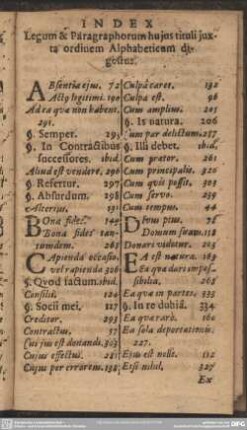 INDEX
Legum & Paragraphorum hujus tituli jux-
ta ordinem Alphabeticum di-
gestus.
ABsentia ejus. 72
Actq legitimi. 190
Ad ea quæ non habent.
291.
§. Semper. 295
§. In Contractibus
successores. ibid.
Aliud est vendere. 296
§. Refertur. 297
§. Absurdum. 298
Alterius.
BOna fides. 344
Bona fides tan-
tumdem. 265
CApienda occasio.
vel rapienda 326
§. Quod factum. ibid.
Consilii. 124
§. Socii mei. 127
Creditor. 293
Contractus. 57
Cui jus est donandi. 303
Cujus effectus. 281
Cujus per errorem. 132
Culpâ caret. 192
Culpa est. 96
Cum amplius. 205
§. Is natura. 206
Cum par delictum. 257
§. Illi debet. ibid.
Cum prætor. 261
Cum principalis. 326
Cum quis possit. 305
Cum servo. 239
Cum tempus. 46
DIvus pius. 76
Domum suam. 158
Donari videtur. 205
EA est natura. 169
Ea quæ dari impos-
sibilia. 265
Ea quæ in partes. 335
§. In re dubiâ. 334
Ea quæ rarò. 160
Ea sola deportationis.
227.
Ejus est nolle. 112
Etsi nihil. 327
Ex